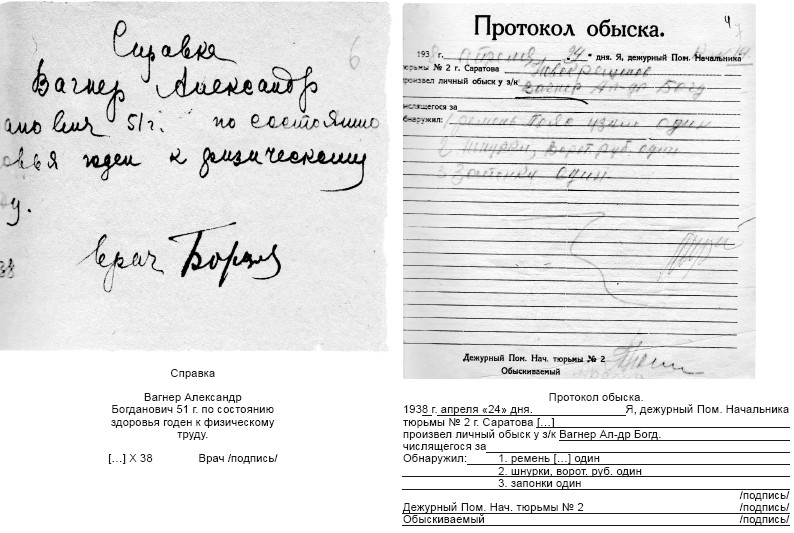 Справка
Вагнер Александр
51 г. по состоянию
годен к физическому
у.
врач
6
Протокол обыска.
4
193 г. апреля „24“ дня. Я, дежурный Пом. Начальника
тюрьмы № 2 г. Саратова
произвел личный обыск у з/к Вагнер Ал-др Богд
числящегося за
обнаружил: 1 ремень один
2 шнурки, ворот. руб. один
3 Запонки один
Дежурный Пом. Нач. тюрьмы № 2
Обыскиваемый
Справка
Вагнер Александр
Богданович 51 г. по состоянию
здоровья годен к физическому
труду.
[...] X 38 Врач /подпись/
Протокол обыска.
1938 г. апреля «24» дня. Я, дежурный Пом. Начальника
тюрьмы № 2 г. Саратова [...]
произвел личный обыск у з/к Вагнер Ал-др Богд.
числящегося за
Обнаружил: 1. ремень [...] один
2. шнурки, ворот. руб. один
3. запонки один
/подпись/
Дежурный Пом. Нач. тюрьмы № 2 /подпись/
Обыскиваемый /подпись/